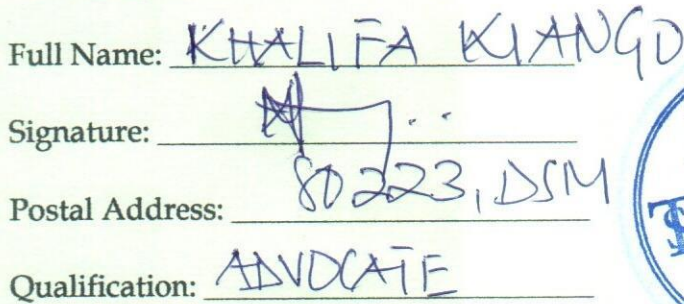 Full Name: KHALIFA KIANGO
Signature:
Postal Address: 80223, DSM
Qualification: ADVOCATE